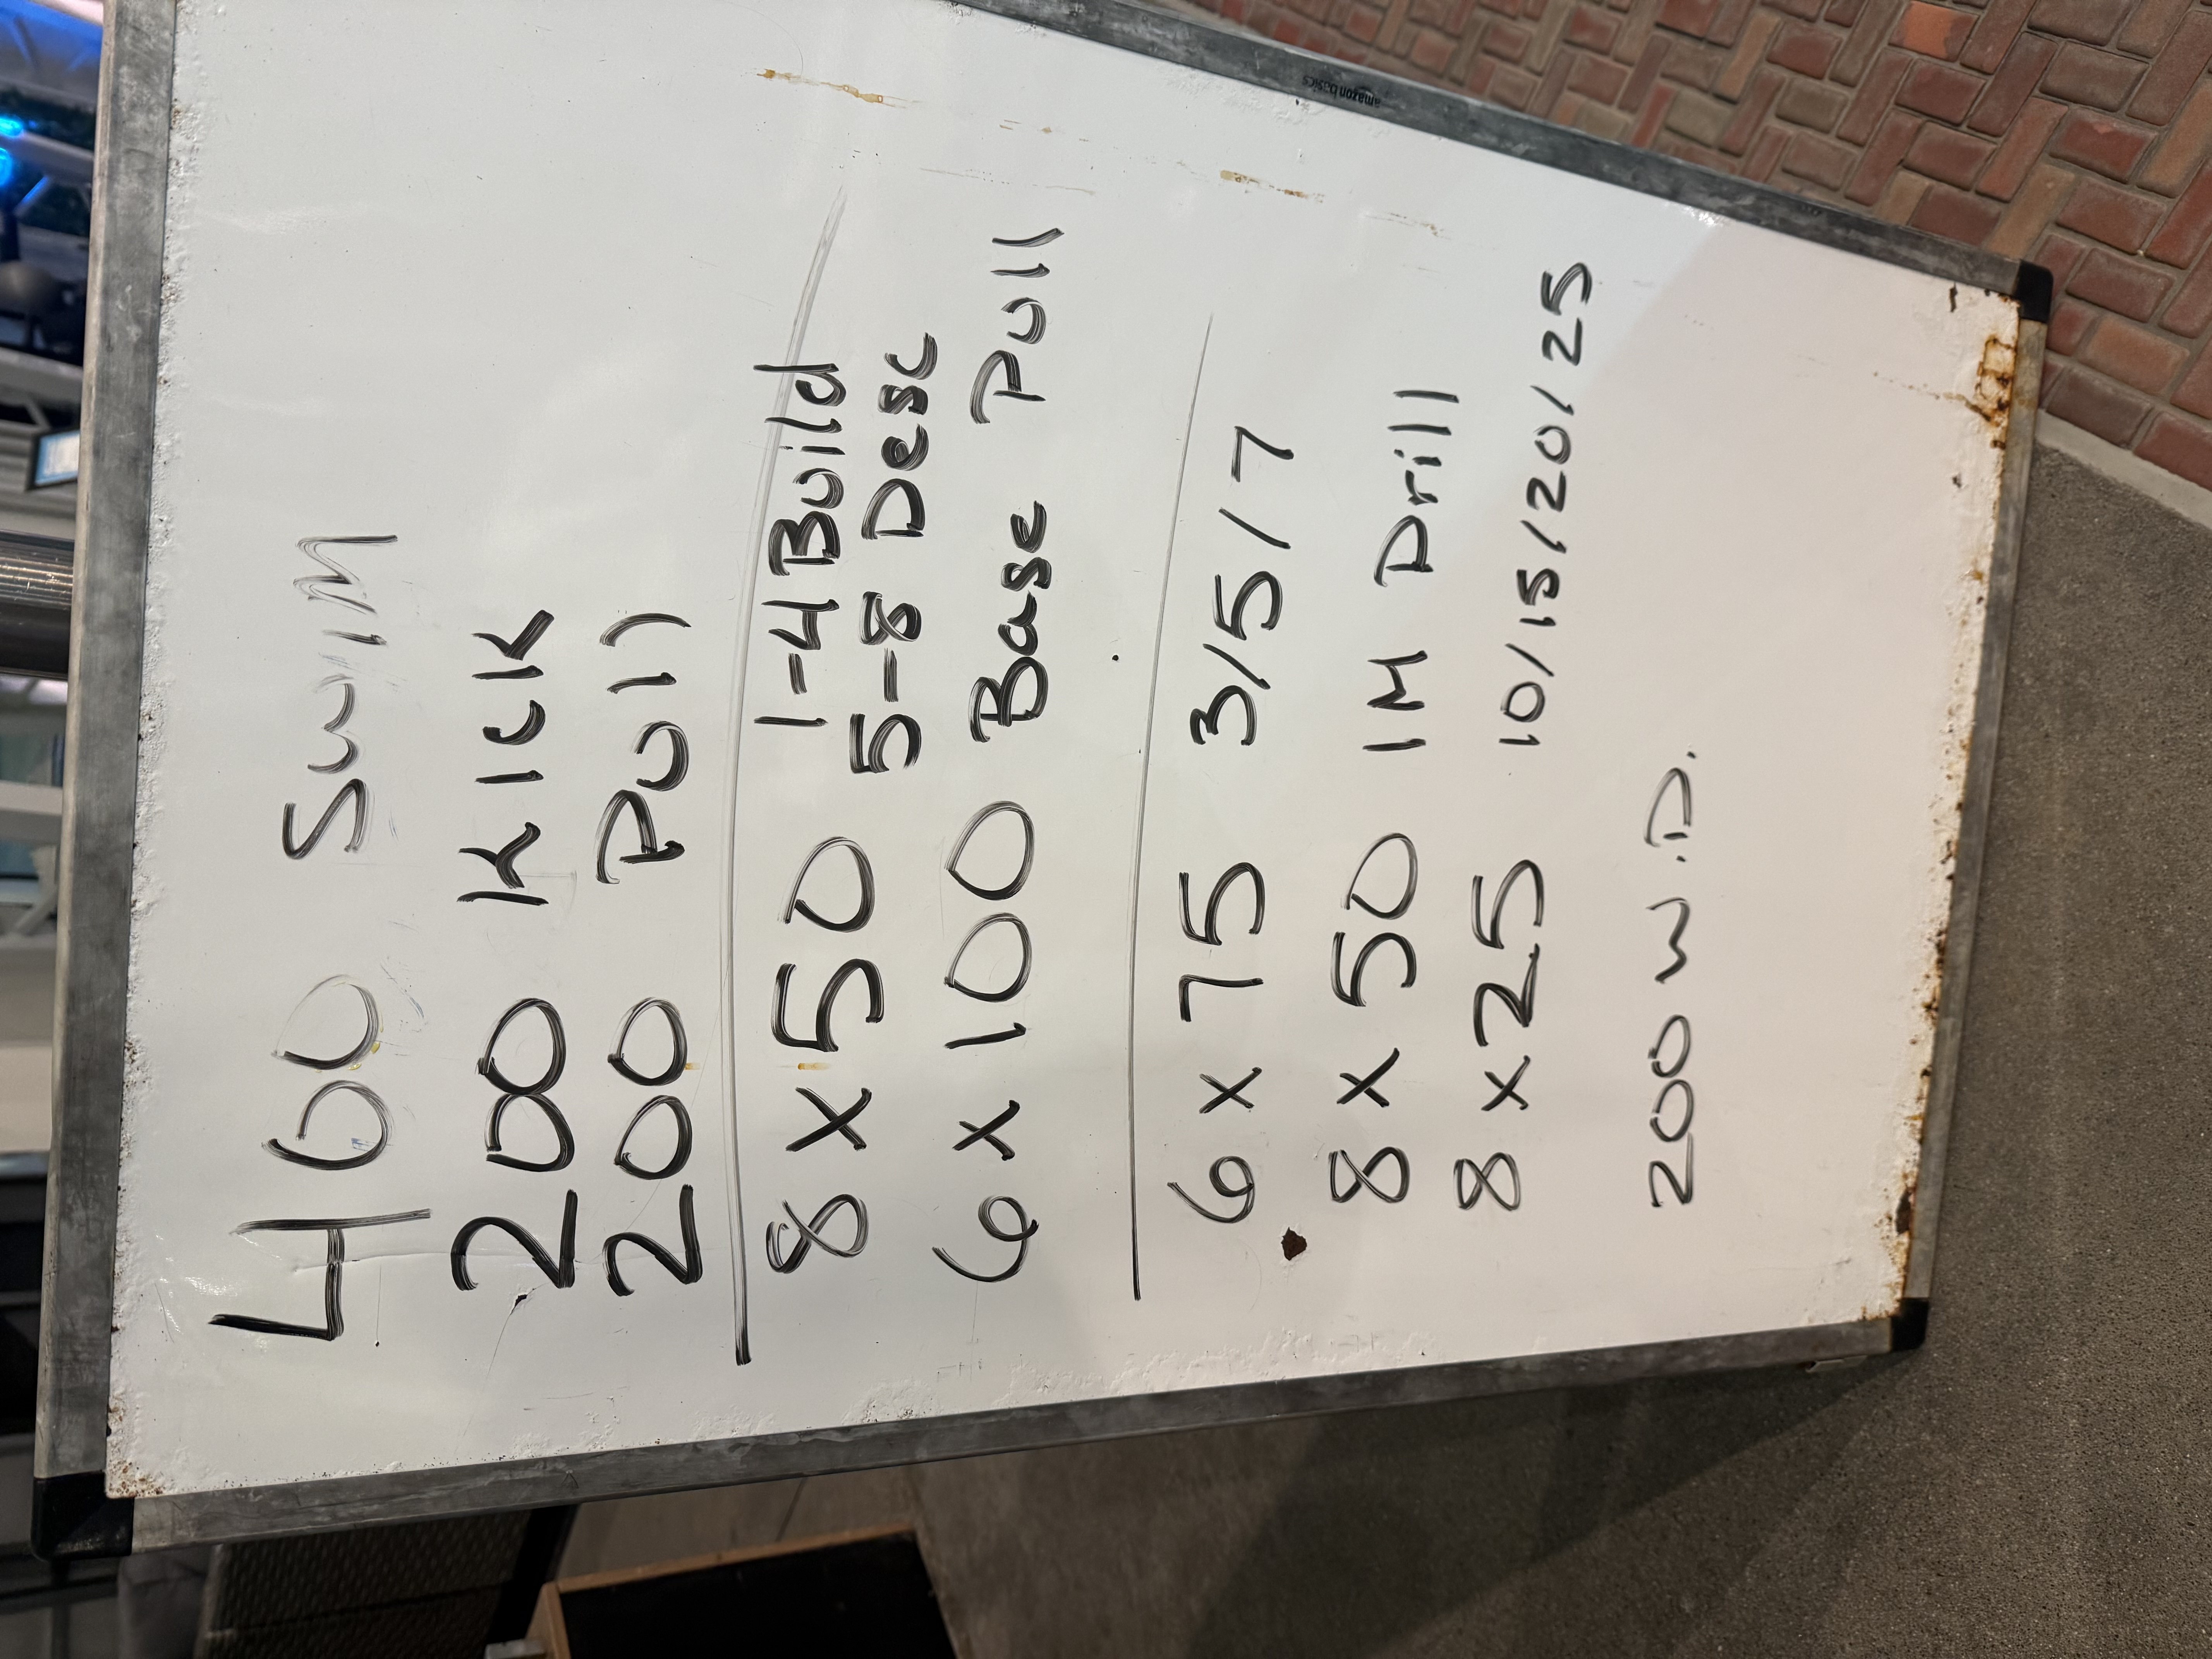 400 Swim
200 Kick
200 Pull
8 x 50 1-4 Build
5-8 Desc
6 x 100 Base Pull
6 x 75 3/5/7
8 x 50 IM Drill
8 x 25 10/15/20/25
200 W.D.
amazon basics